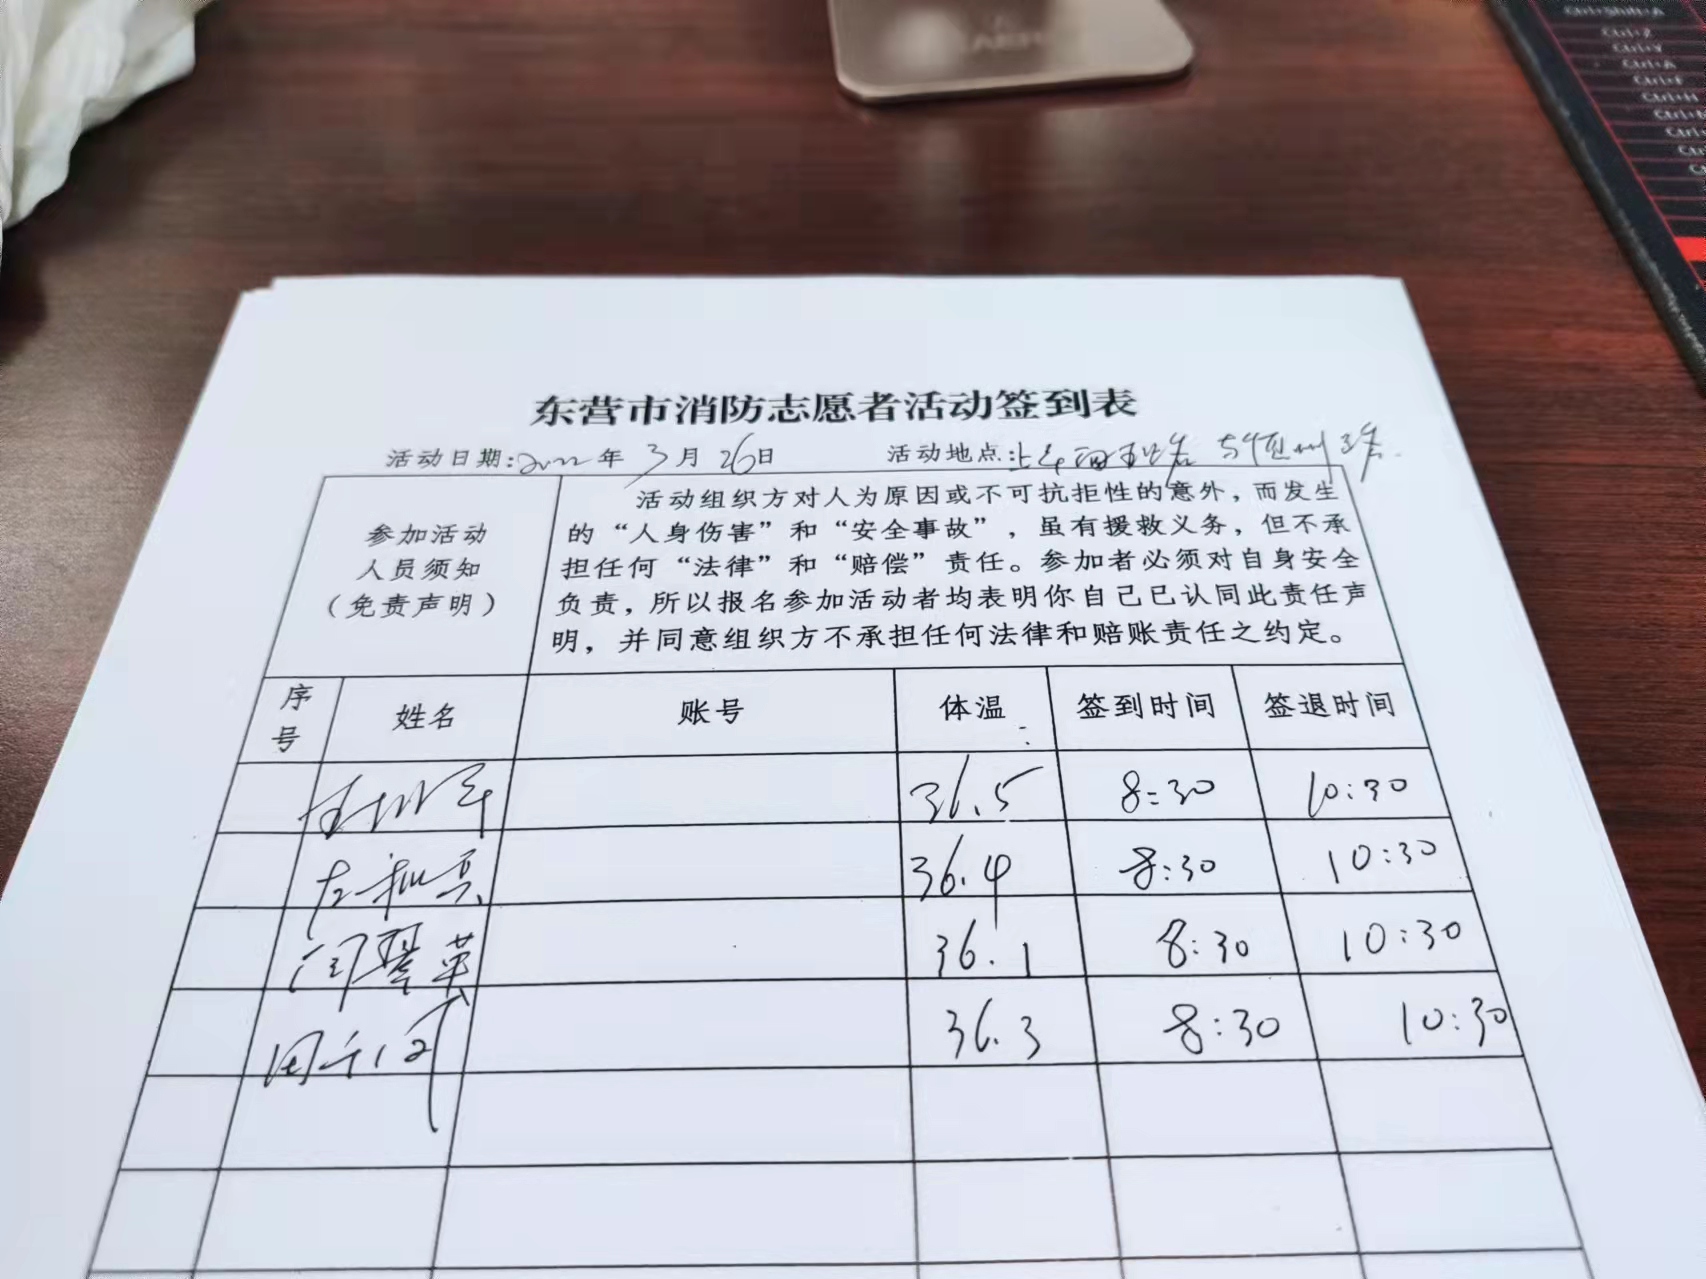 Ctrl+Shift+A
Ctrl+Z
Ctrl+Y
Ctrl+A
Ctrl+F
Ctrl+H
东营市消防志愿者活动签到表
活动日期:2022年3月26日 活动地点:
参加活动
人员须知
(免责声明)
活动组织方对人为原因或不可抗拒性的意外,而发生
的“人身伤害”和“安全事故”,虽有援救义务,但不承
担任何“法律”和“赔偿”责任。参加者必须对自身安全
负责,所以报名参加活动者均表明你自己已认同此责任声
明,并同意组织方不承担任何法律和赔账责任之约定。
序号 姓名 账号 体温 签到时间 签退时间
36.5 8:30 10:30
36.4 8:30 10:30
闫翠英 36.1 8:30 10:30
36.3 8:30 10:30